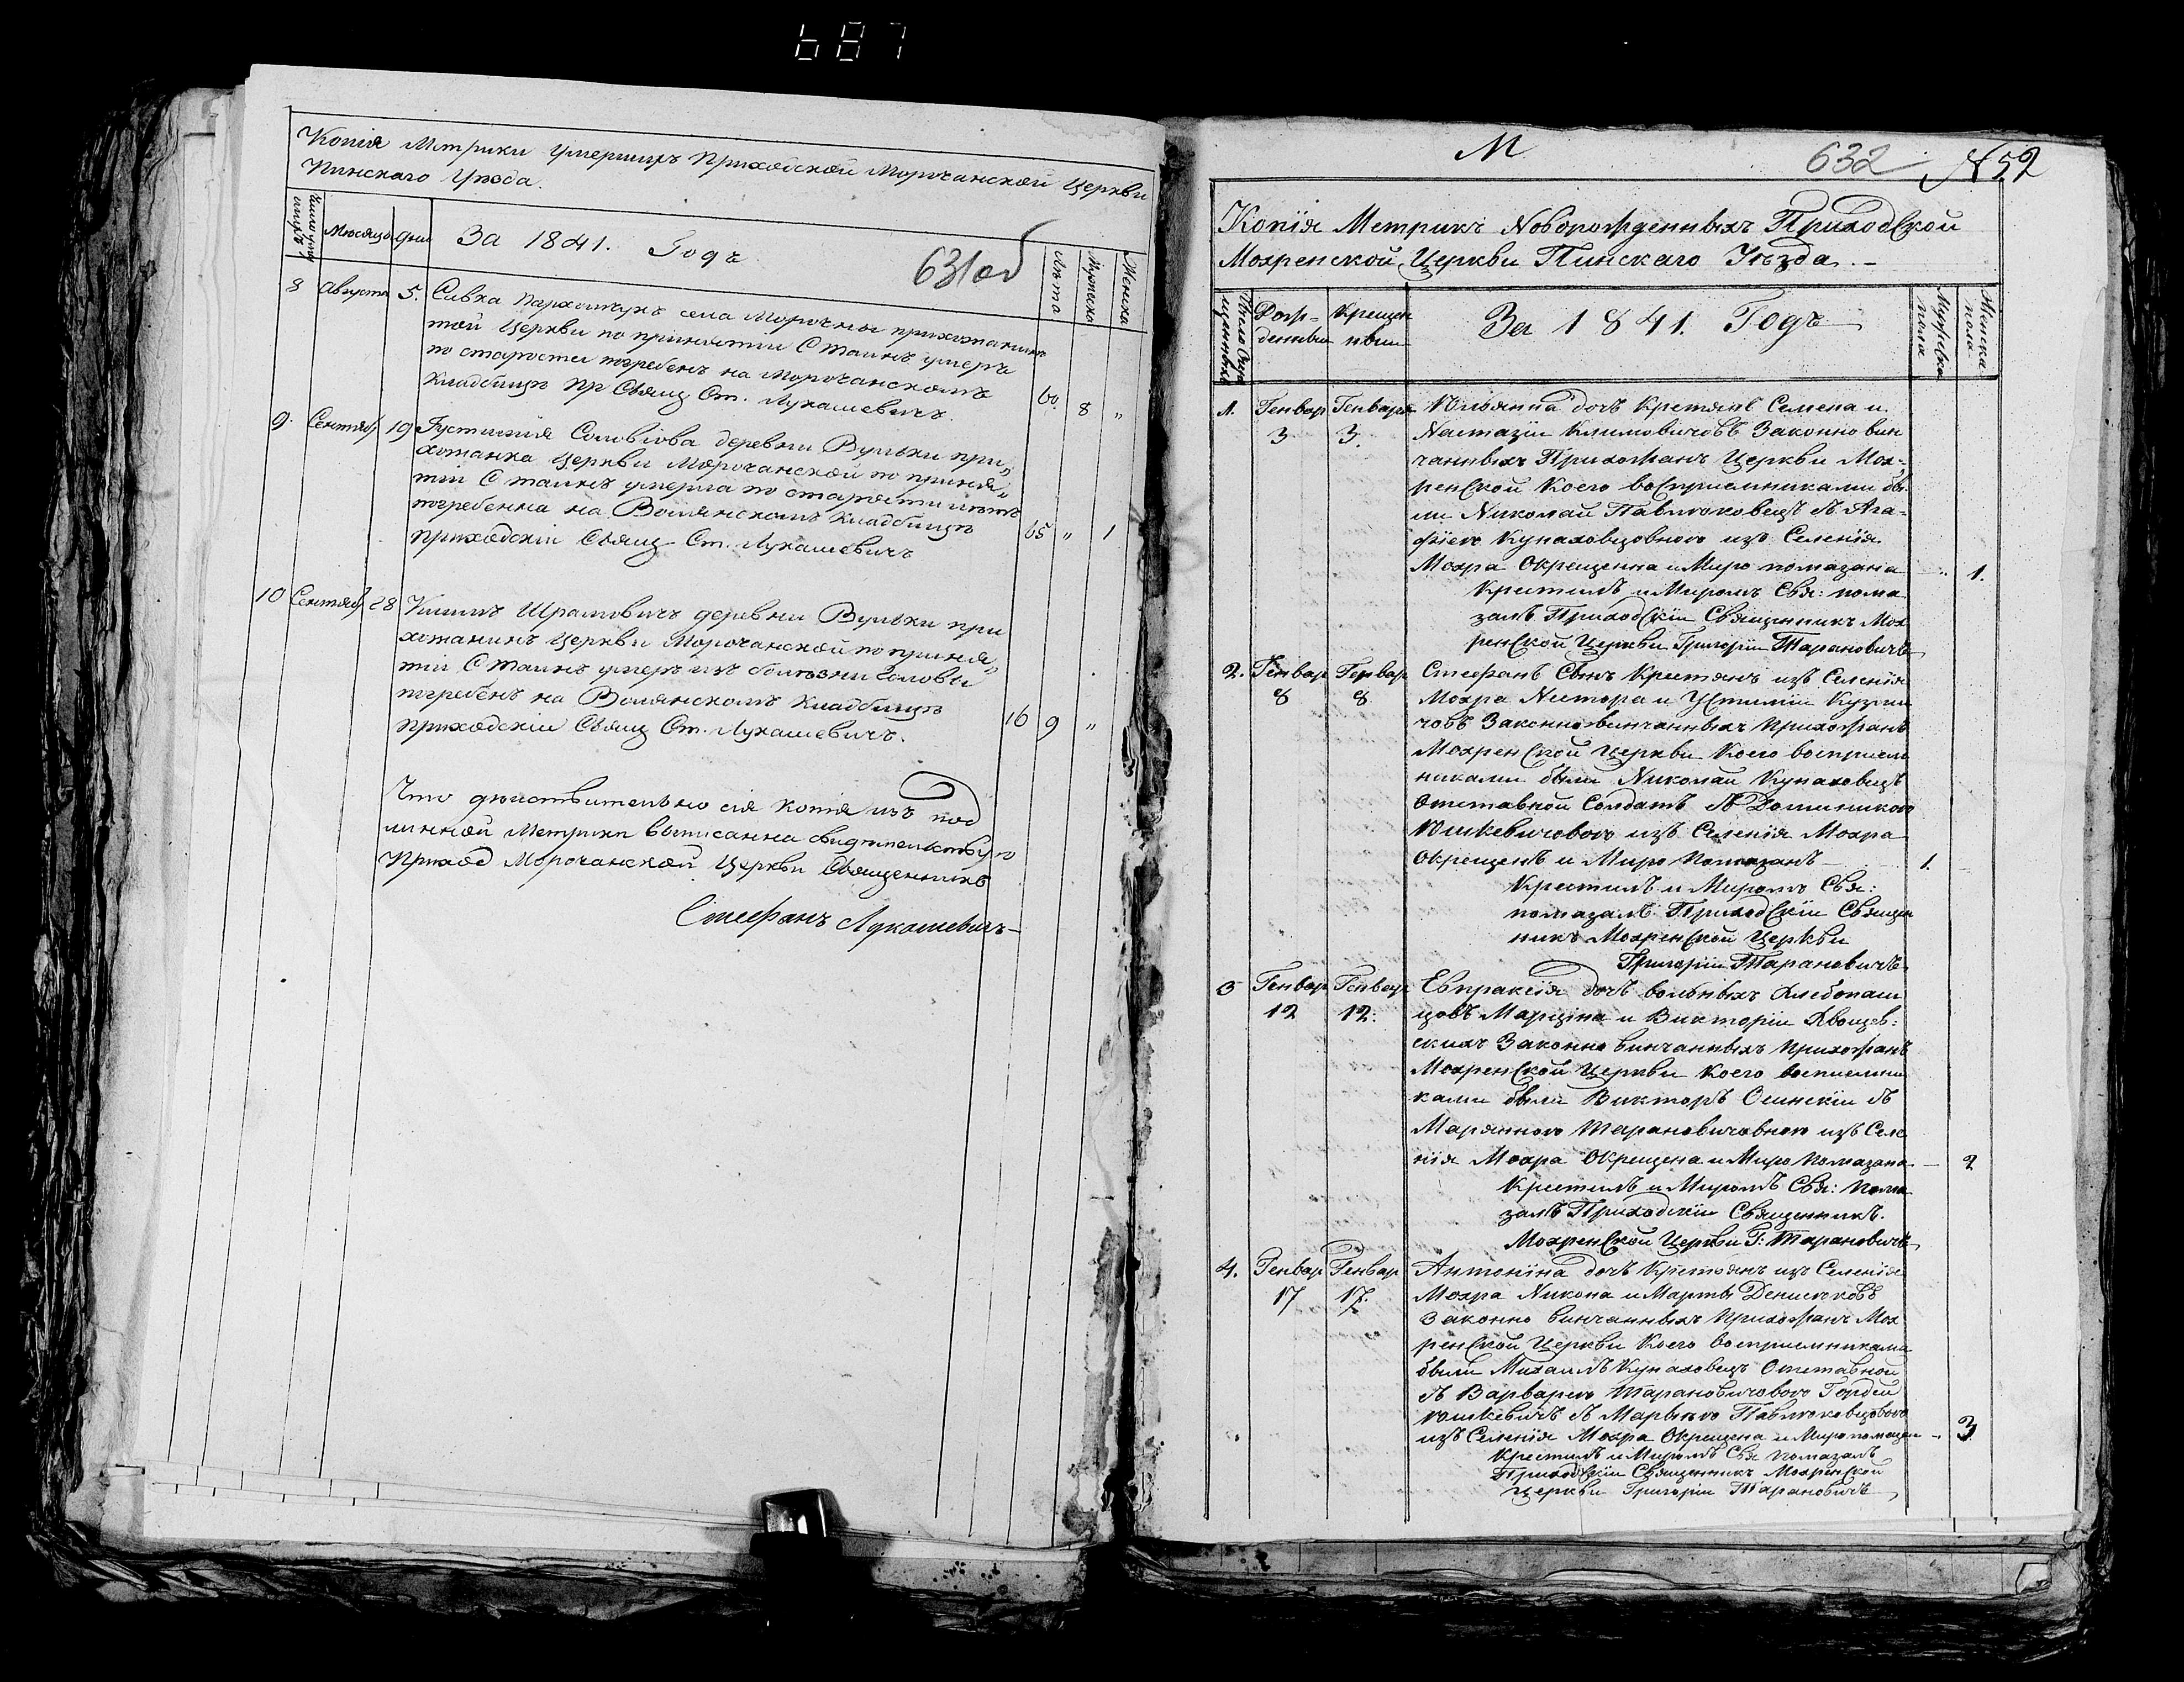 687
Копія Метрики Умершихъ Приходской Морочанской Церкви
Пинскаго Уѣзда.
Мѣсяцъ Дни За 1841. Годъ 631об Лѣта Мужеска Женска
8 Августа 5. Савка Пархомчукъ села Морочны прихожанинъ
той Церкви по принятіи С Таинъ умеръ
по старости погребенъ на Морочанскомъ
Кладбищѣ Пр Свящ Ст. Лукашевичъ. 60. 8 „
9. Сентяб 19 Густинія Соловіова деревни Вульки при„
хожанка Церкви Морочанской по приня„
тіи С Таинъ умерла по старости лѣтъ
погребенна на Волянскомъ Кладбищѣ 65 „ 1
Приходскій Свящ Ст. Лукашевичъ
10 Сентяб 28 Климъ Шрамовичъ деревни Вульки при
хожанинъ Церкви Морочанской по приня„
тіи С Таинъ умеръ изъ болѣзни головы
погребенъ на Волянскомъ Кладбищѣ 16 9 „
Приходскій Свящ Ст. Лукашевичъ.
Что дѣйствительно сія копія изъ под
линной Метрики выписанна свидѣтельствую
Приход Морочанской Церкви Священникъ
Стефанъ Лукашевичъ
М 632 N 52
Копїя Метрикъ Новорожденныхъ Приходской
Мохренской Церкви Пинскаго Уѣзда.
Число Окре
щенныхъ Рож=
денныи Крещен
ныи За 1841. Годъ Мужска
пола Женска
пола
1. Генвар
3 Генваря
3. Юльянна дочь Крестянъ Семена и
Настазіи Климовичовъ Законно вин
чанныхъ Прихожанъ Церкви Мох=
ренской Коего воспріемниками бы
ли Николай Павлюковецъ съ Ага=
фїею Кунаховцовною изъ Селенїя
Мохра Окрещенна и Миро помазана „ 1.
Крестилъ и Миромъ Свя: пома
залъ Приходскїи Священникъ Мох
ренской Церкви Григорїи Тарановичъ
2. Генвар
8 Генвар
8 Стефанъ Сынъ Крестянъ изъ Селенїя
Мохра Нестора и Устиміи Кузми
човъ Законно винчанныхъ Прихожанъ
Мохренской Церкви Коего воспрiем
никами были Николай Кунаховецъ
Отставной Солдатъ съ Доминикою
Юшкевичовою изъ Селенїя Мохра
Окрещенъ и Миро Помазанъ 1.
Крестилъ и Миромъ Свя:
помазалъ Приходскїи Священ
никъ Мохренской Церкви
Григорїи Тарановичъ
3 Генвар
12 Генвар
12. Евпраксїя дочь вольныхъ Хлебопаш
цовъ Марцїна и Викторїи Хвощев:
скихъ Законно винчанныхъ Прихожанъ
Мохренской Церкви Коего воспиемни
ками были Викторъ Осинскїи съ
Марянною Тарановичовною изъ Селе
нїя Мохра Окрещена и Миро помазана 2
Крестилъ и Миромъ Свя: Пома
залъ Приходскїи Священникъ.
Мохренской Церкви Г: Тарановичъ
4. Генвар
17 Генвар
17. Антонїна дочь Крестянъ изъ Селенїя
Мохра Никона и Марты Денисюковъ
Законно винчанныхъ Прихожанъ Мох
ренской Церкви Коего воспрiемниками
были Михаилъ Кунаховецъ Отставной
съ Варварою Тарановичовою Гордей
Юшкевичъ съ Марьяною Павлюковцовою
изъ Селенїя Мохра Окрещена и Миро помазан „ 3
Крестилъ и Миромъ Свя помазалъ
Приходскїи Священникъ Мохренской
Церкви Григорїи Тарановичъ